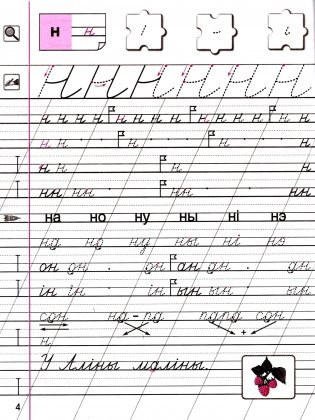 н н
н н н н н н н н н н н
н н н н
н н н н
нн нн нн нн
на но ну ны ні нэ
на но ну ны ні нэ
он он он ан ан ан
ін ін ін ын ын ын
сон на - па папа сон
+
н
У Аліны маліны.
4